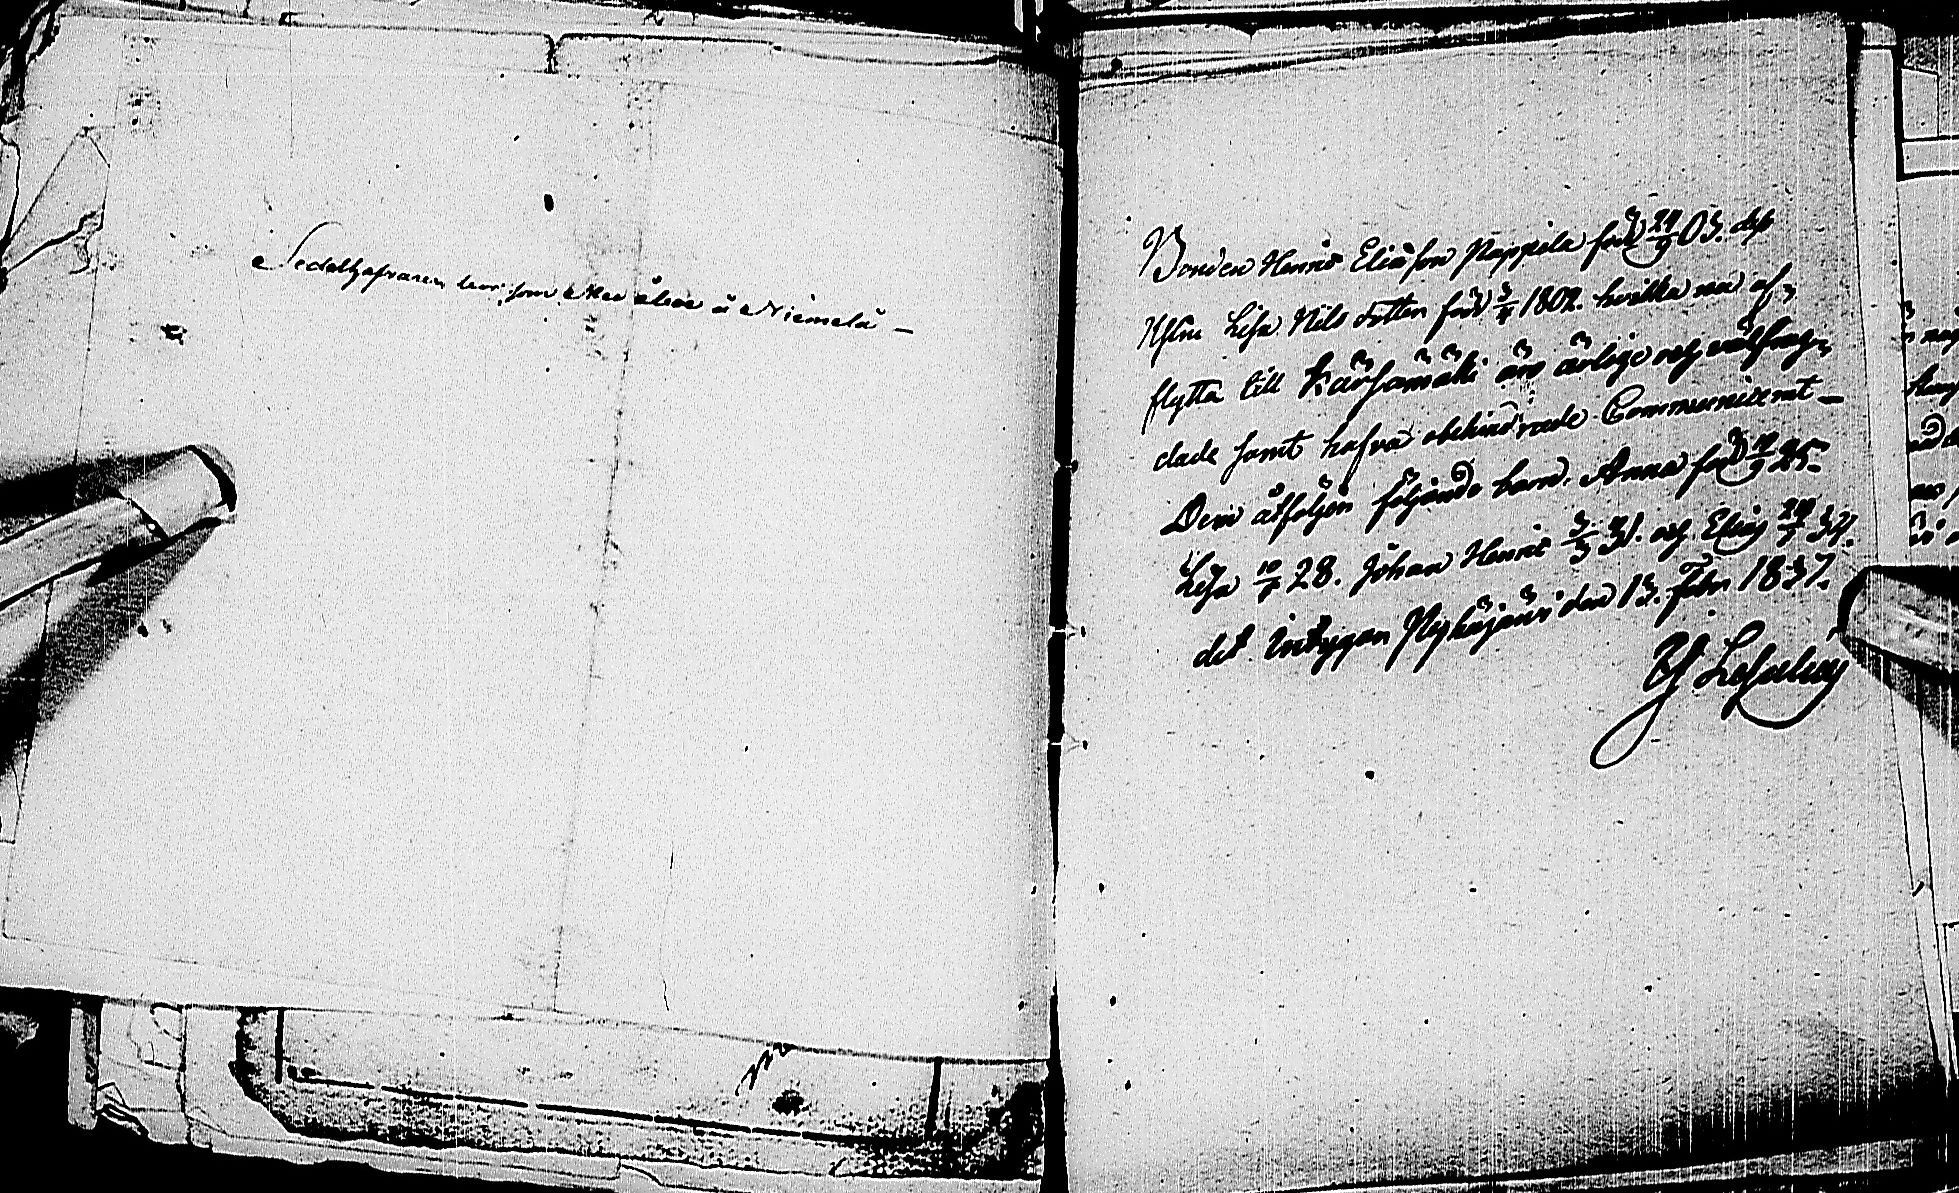 å Niemelä –
Bonden Henric Eliasson Pappila född 24/9 03. dess
Hustru Lisa Nils dotter född 3/4 1802. hvilka nu af-
flytta till Kärsämäki äro ärlige och välfräg-
dade samt hafva obehindrade Communicerat –
Dem åtföljer följande barn. Anna född 9 25.
Lisa 10/7 28. Johan Henric 3/3 31. och Elias 34.
det intygar Pyhäjärvi den 13. Febr 1837.